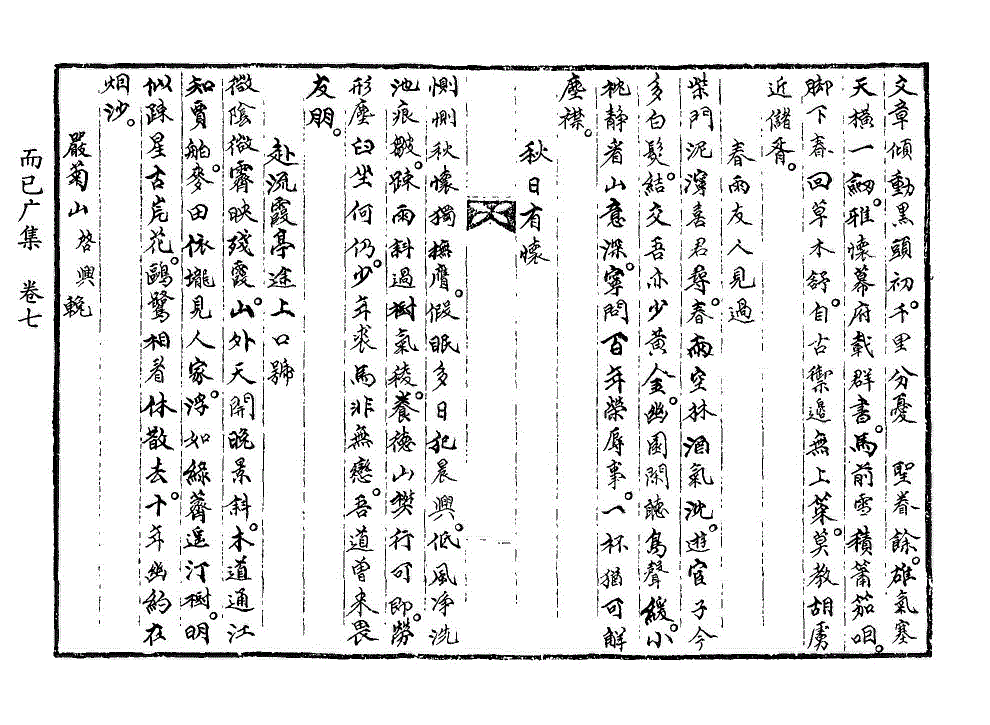 文章傾動黑頭初。千里分憂 聖眷餘。雄氣塞
天橫一劒。雅懷幕府載群書。馬前雪積簫笳咽。
脚下春回草木舒。自古禦邊無上策。莫敎胡虜
近儲胥。
春雨友人見過
柴門泥濘喜君尋。春雨空林酒氣沈。遊宦子今
多白髮。結交吾亦少黃金。幽園閑聽鳥聲緩。小
枕靜看山意深。寧問百年榮辱事。一杯猶可解
塵襟。
秋日有懷
惻惻秋懷獨撫膺。假眠多日犯晨興。低風净洗
池痕皺。踈雨斜過樹氣稜。養德山樊行可卽。勞
形塵臼坐何仍。少年裘馬非無戀。吾道曾來畏
友朋。
赴流霞亭途上口號
微陰微霽映殘霞。山外天開晩景斜。木道通江
知賈舶。麥田依壠見人家。浮如綠薺遥汀樹。明
似踈星古岸花。鷗鷺相看休散去。十年幽約在
烟沙。
嚴菊山 啓興 輓
而已广集 卷七